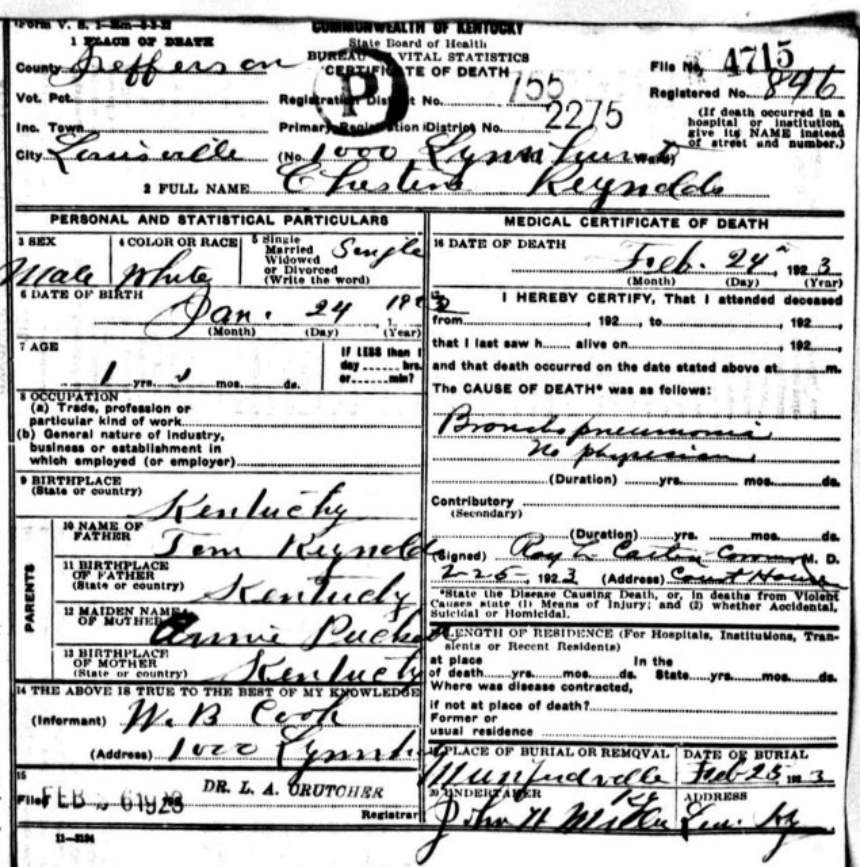 Form V. S. 1-
COMMONWEALTH OF KENTUCKY
State Board of Health
BUREAU VITAL STATISTICS
CERTIFICATE OF DEATH
P
1 PLACE OF DEATH
County Jefferson
Vot. Pct.
Inc. Town
City Louisville
Registration District No. 755
Primary Registration District No. 2275
(No. 1000 Lynnhurst Ward)
File No. 4715
Registered No. 896
(If death occurred in a
hospital or institution,
give its NAME instead
of street and number.)
2 FULL NAME Reynolds
PERSONAL AND STATISTICAL PARTICULARS
3 SEX
Male
4 COLOR OR RACE
White
5 Single
Married
Widowed
or Divorced
(Write the word)
Single
6 DATE OF BIRTH
Jan. 24
(Month) (Day) (Year)
7 AGE
1 yrs. mos. ds.
IF LESS than 1
day hrs.
or min?
8 OCCUPATION
(a) Trade, profession or
particular kind of work
(b) General nature of industry,
business or establishment in
which employed (or employer)
9 BIRTHPLACE
(State or country)
Kentucky
PARENTS
10 NAME OF
FATHER
Tom Reynolds
11 BIRTHPLACE
OF FATHER
(State or country)
Kentucky
12 MAIDEN NAME
OF MOTHER
Annie
13 BIRTHPLACE
OF MOTHER
(State or country)
Kentucky
14 THE ABOVE IS TRUE TO THE BEST OF MY KNOWLEDGE
(Informant) W. B. Cook
(Address) 1000
15
Filed FEB 26 1923 DR. L. A. CRUTCHER
Registrar
11-3184
MEDICAL CERTIFICATE OF DEATH
16 DATE OF DEATH
Feb. 24 1923
(Month) (Day) (Year)
I HEREBY CERTIFY, That I attended deceased
from 192 , to 192 ,
that I last saw h alive on 192 ,
and that death occurred on the date stated above at m.
The CAUSE OF DEATH* was as follows:
Broncho pneumonia
No physician
(Duration) yrs. mos. ds.
Contributory
(Secondary)
(Duration) yrs. mos. ds.
(Signed) Roy L. Carter Coroner M. D.
2-25, 1923 (Address) Court House
*State the Disease Causing Death, or, in deaths from Violent
Causes state (1) Means of Injury; and (2) whether Accidental,
Suicidal or Homicidal.
LENGTH OF RESIDENCE (For Hospitals, Institutions, Tran-
sients or Recent Residents)
at place In the
of death yrs. mos. ds. State yrs. mos. ds.
Where was disease contracted,
if not at place of death?
Former or
usual residence
PLACE OF BURIAL OR REMOVAL
Munfordville Ky
DATE OF BURIAL
Feb 25 1923
20 UNDERTAKER
John H Miller
ADDRESS
Lou. Ky